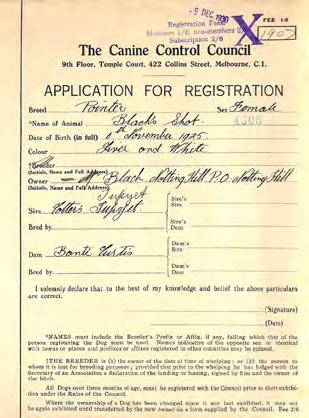 -5 DEC. 1930
Registration Fees
Members 1/6, non-members 2/6
Subscription 2/6
X
FEE 1/6
1907
The Canine Control Council
9th Floor, Temple Court, 422 Collins Street, Melbourne, C.1.
APPLICATION FOR REGISTRATION
Breed Pointer Sex Female
*Name of Animal Black's Shot. 4508
Date of Birth (in full) 6th November 1925
Colour Liver and White
†Breeder
(Initials, Name and Full Address)
Owner Black, Notting Hill P.O. Notting Hill
(Initials, Name and Full Address)
Sire
Sire's Sire
Sire's Dam
Bred by
Dam
Dam's Sire
Dam's Dam
Bred by
I solemnly declare that to the best of my knowledge and belief the above particulars
are correct.
(Signature)
(Date)
*NAMES must include the Breeder's Prefix or Affix, if any, failing which that of the
person registering the Dog must be used. Names indicative of the opposite sex or identical
with towns or places and prefixes or affixes registered in other countries may be refused.
†THE BREEDER is (1) the owner of the dam at time of whelping; or (2) the person
to whom it is lent for breeding purposes; provided that prior to the whelping he has lodged with the
Secretary of an Association a declaration of the lending or leasing, signed by him and the owner of
the bitch.
All Dogs over three months of age, must be registered with the Council prior to their exhibition
under the Rules of the Council.
Where the ownership of a Dog has been changed since it was last exhibited, it may not
be again exhibited until transferred by the new owner on a form supplied by the Council. Fee 2/6